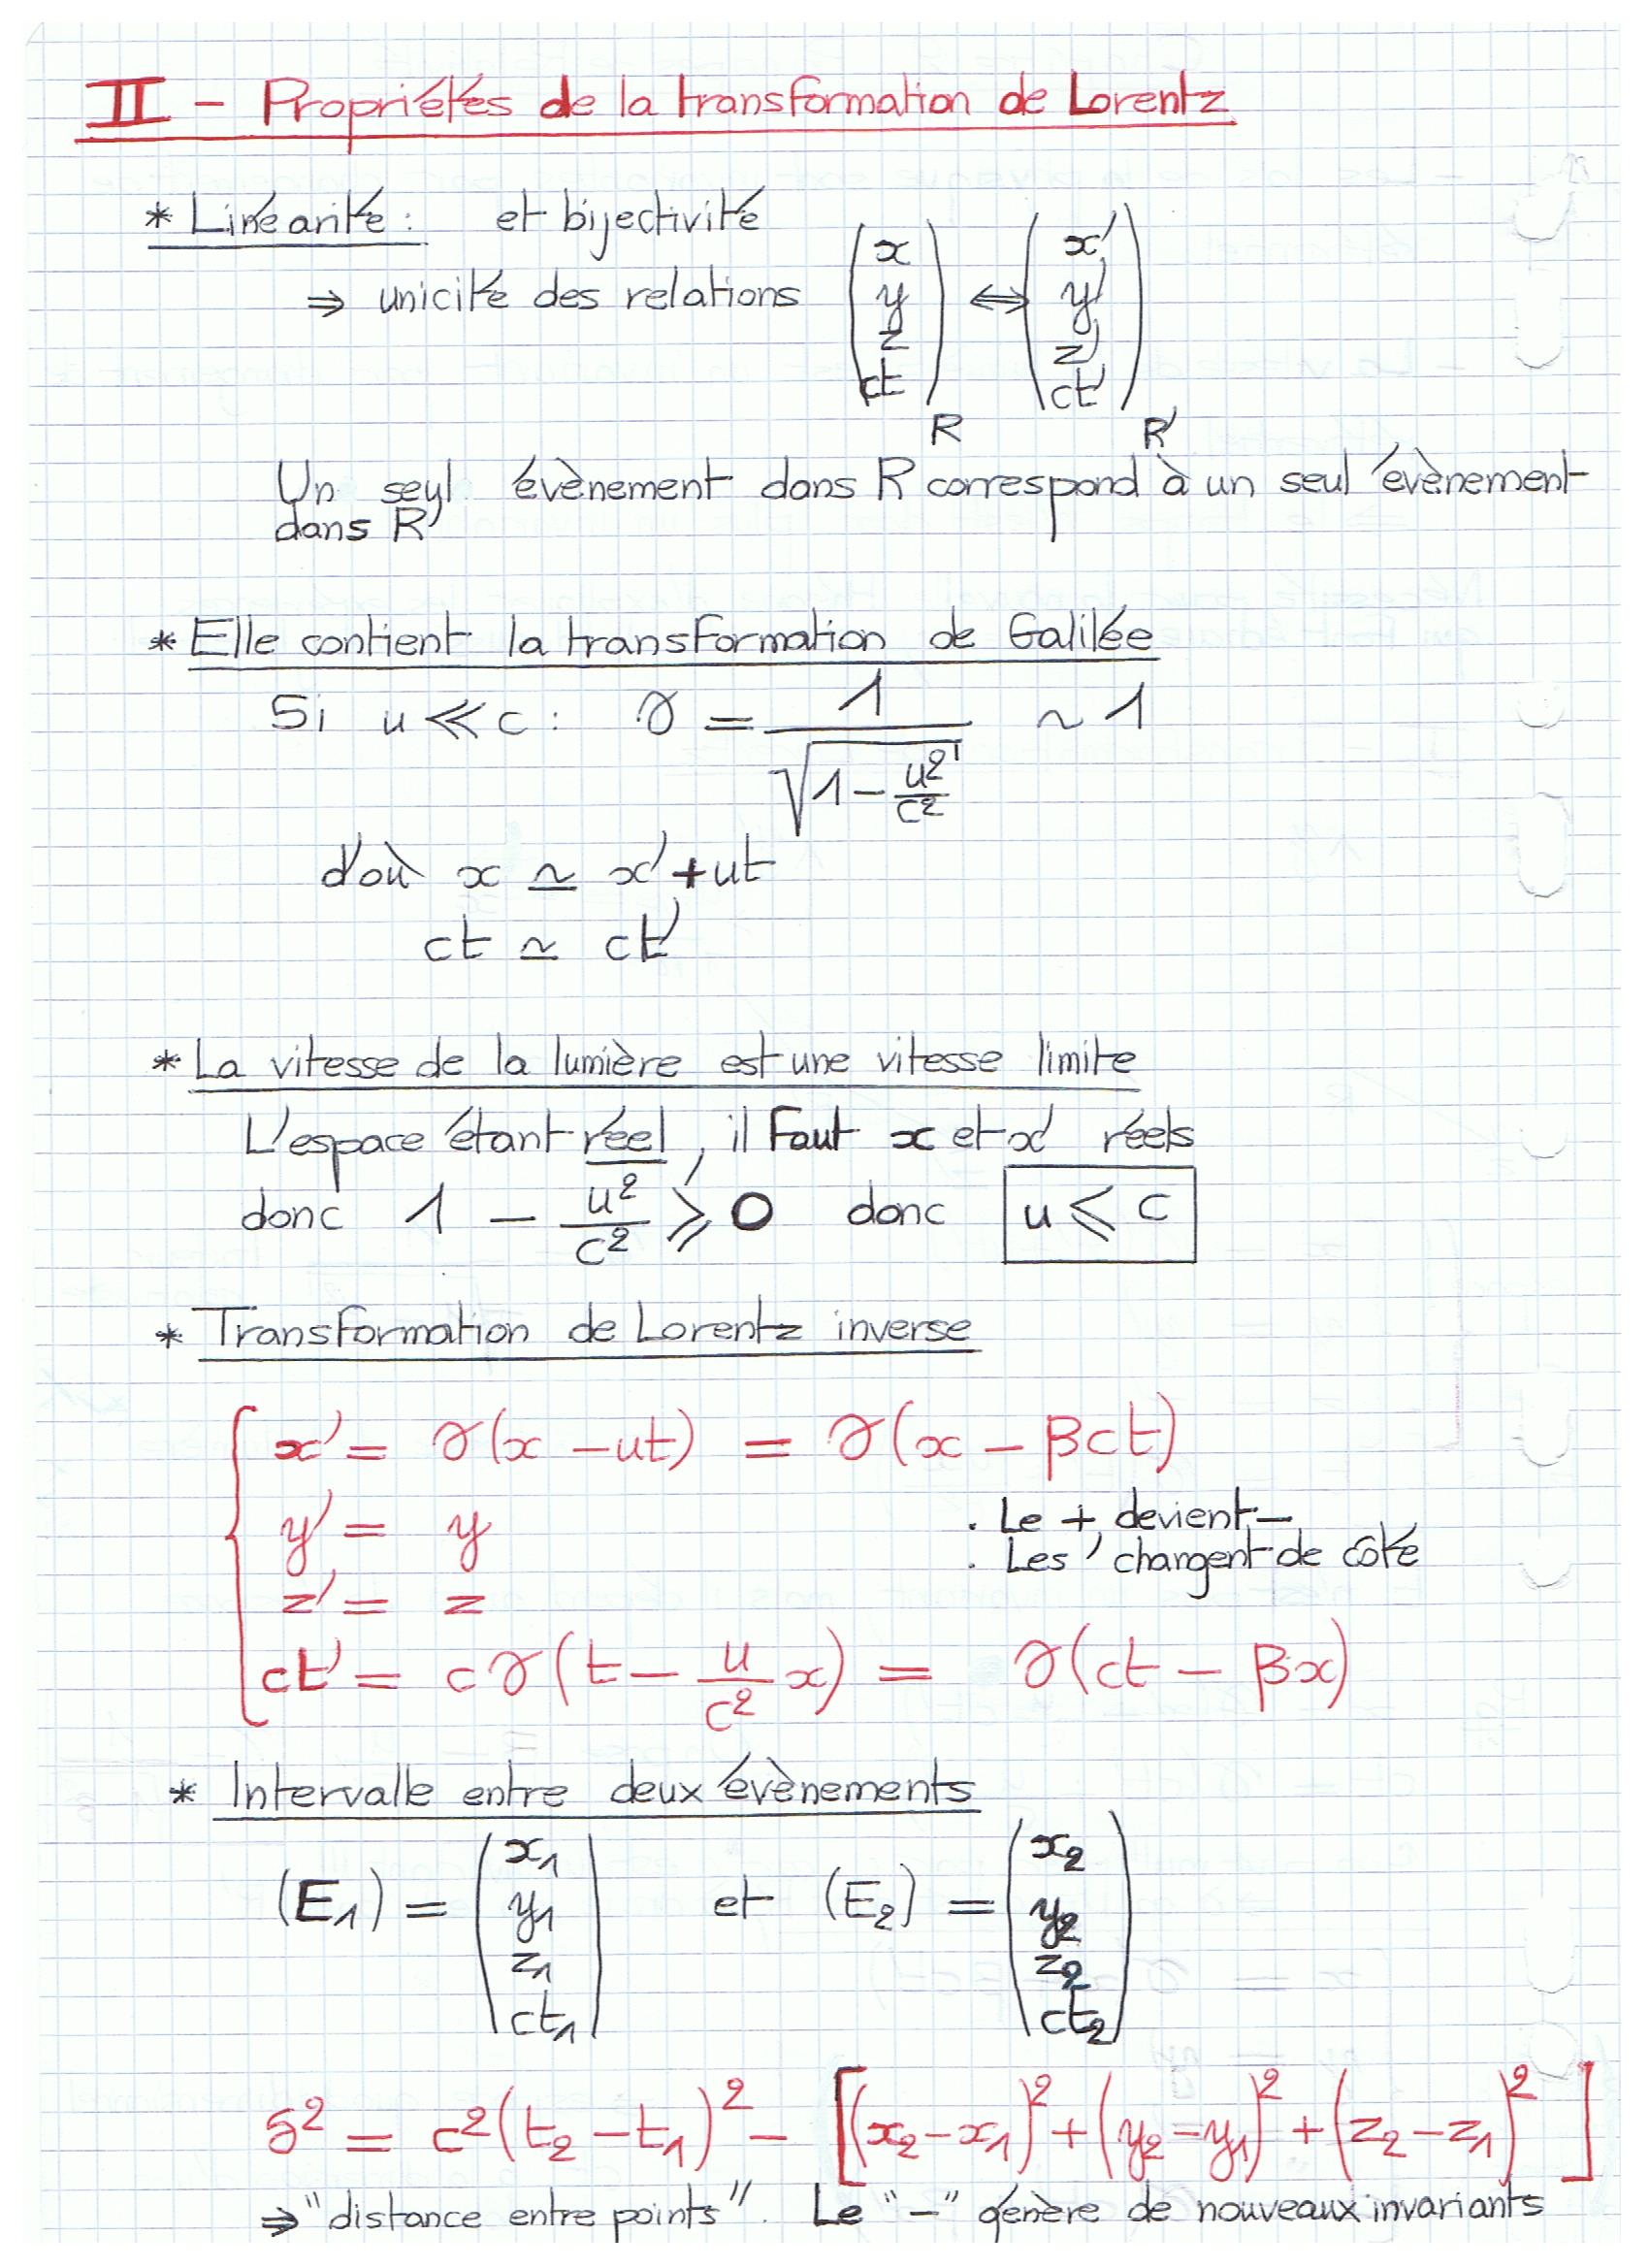 II - Propriétés de la transformation de Lorentz
* Linéarité : et bijectivité
⇒ unicité des relations (x y z ct)R ⇔ (x' y' z' ct')R'
Un seyl évènement dans R correspond à un seul évènement
dans R'
* Elle contient la transformation de Galilée
Si u ≪ c : γ = 1/√(1 - u²/c²) ~ 1
d'où x ≃ x' + ut
ct ≃ ct'
* La vitesse de la lumière est une vitesse limite
L'espace étant réel, il faut x et x' réels
donc 1 - u²/c² ⩾ 0 donc u ⩽ c
* Transformation de Lorentz inverse
x' = γ(x - ut) = γ(x - βct)
y' = y
. Le + devient -
. Les ' changent de côté
z' = z
ct' = cγ(t - u/c² x) = γ(ct - βx)
* Intervalle entre deux évènements
(E₁) = (x₁ y₁ z₁ ct₁) et (E₂) = (x₂ y₂ z₂ ct₂)
s² = c²(t₂ - t₁)² - [(x₂ - x₁)² + (y₂ - y₁)² + (z₂ - z₁)²]
⇒ "distance entre points". Le "-" génère de nouveaux invariants